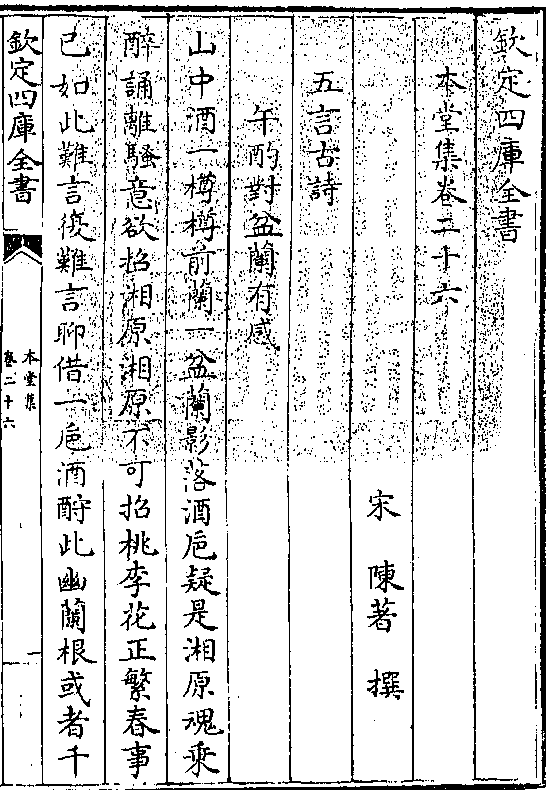 欽定四庫全書
本堂集卷二十六
宋 陳著 撰
五言古詩
午酌對盆蘭有感
山中酒一樽樽前蘭一盆蘭影落酒卮疑是湘原魂乘
醉誦離騷意欲招湘原湘原不可招桃李花正繁春事
已如此難言復難言聊借一卮酒酹此幽蘭根或者千
欽定四庫全書
本堂集
卷二十六